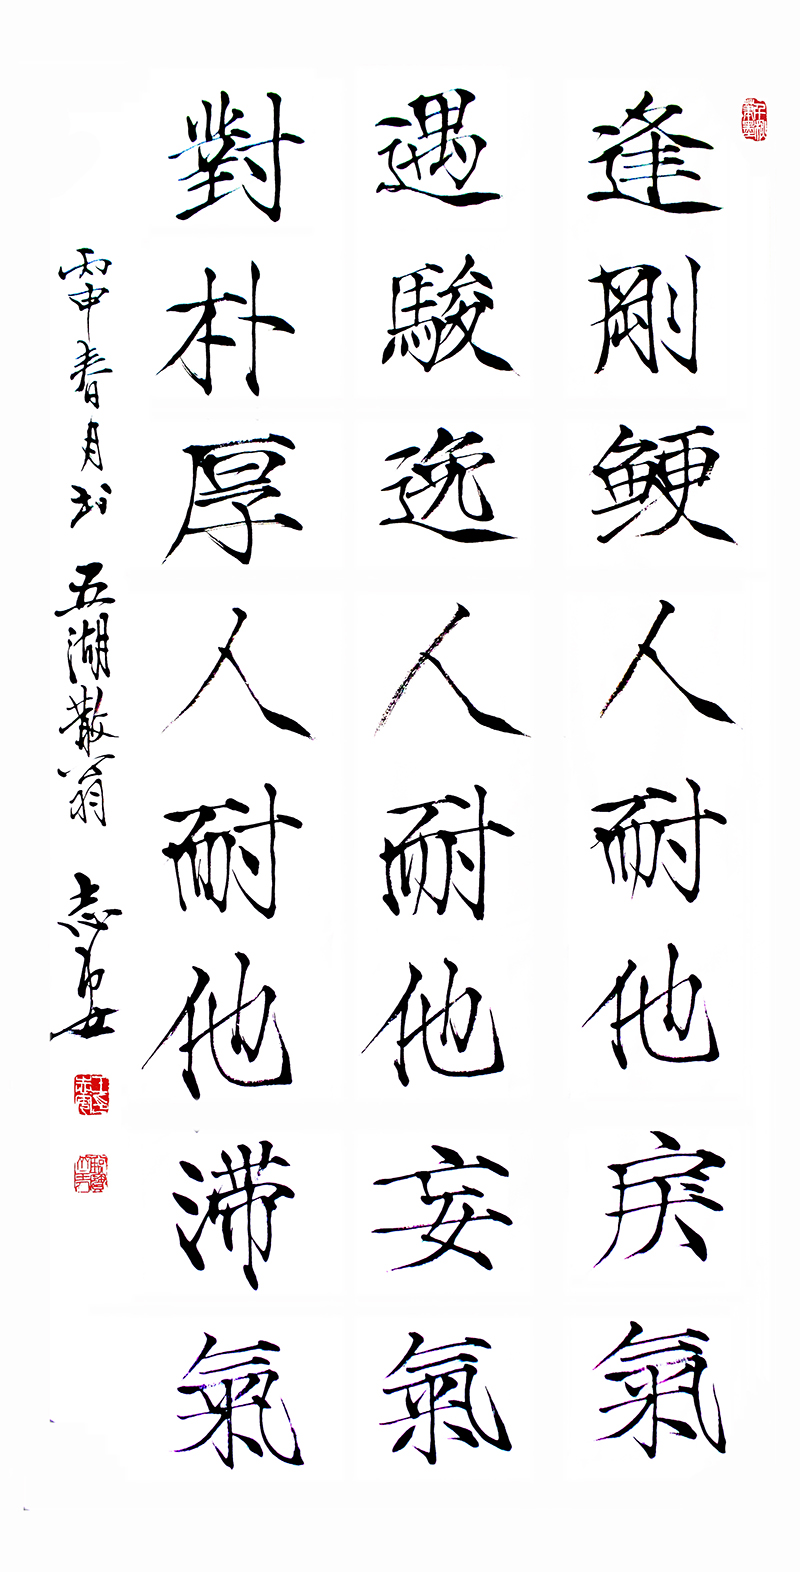 逢剛鯁人耐他戾氣
遇駿逸人耐他妄氣
對朴厚人耐他滯氣
丙申春月书 五湖散翁 志